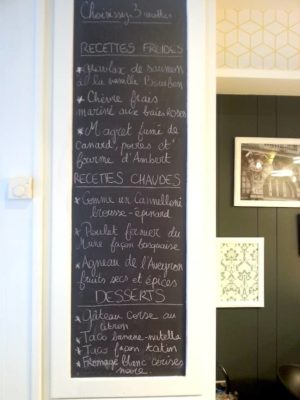 Choisissez 3 recettes
RECETTES FROIDES
* gravlax de saumon
à la vanille Bourbon
* Chèvre frais
mariné aux baies Roses
* Magret fumé de
canard, poires et
fourme d'Ambert
RECETTES CHAUDES
* Comme un Cannelloni
brousse-épinard
* Poulet fermier du
Mure façon basquaise
* Agneau de l'Aveyron
fruits secs et épices
DESSERTS
* Gâteau corse au
citron
* Taco banane-nutella
* Taco façon tatin
* Fromage blanc cerises
noire.